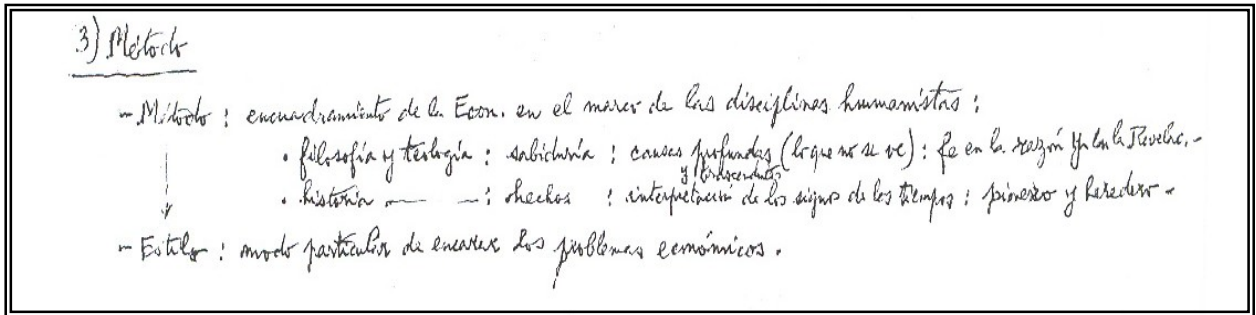 3) Método
- Método : encuadramiento de la Econ. en el marco de las disciplinas humanistas :
• filosofía y teología : sabiduría : causas profundas (lo que no se ve) : fe en la razón y en la Revelac.-
y trascendentes
• historia — — : hechos : interpretación de los signos de los tiempos : pionero y heredero -
- Estilo : modo particular de encarar los problemas económicos .